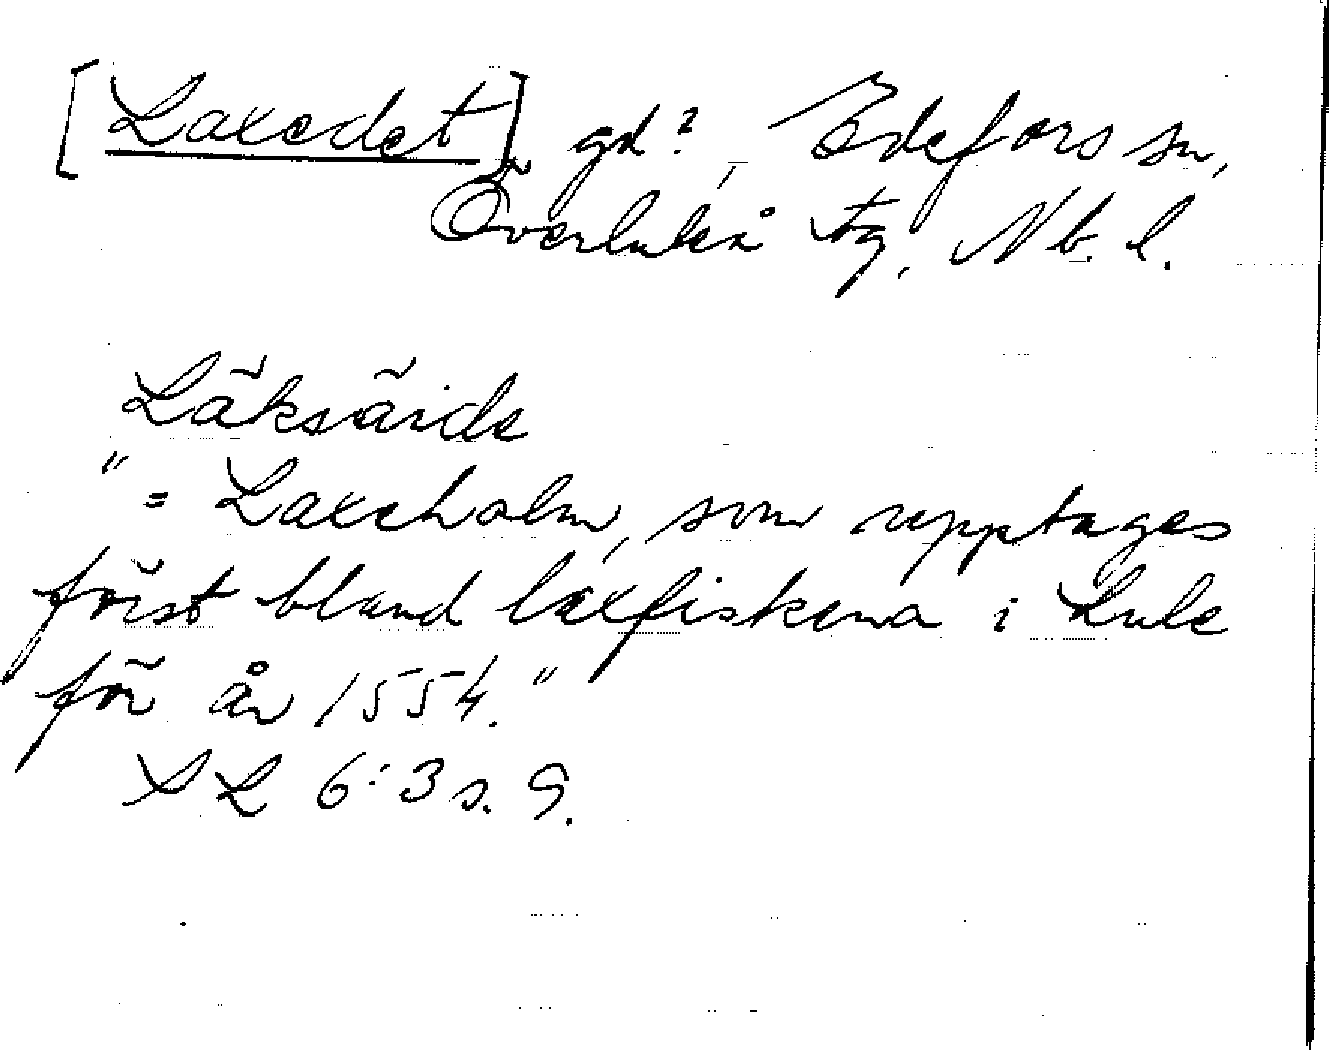 [Laxedet], gd?, Edefors sn,
Överluleå tg, Nb. l.
Läksäide
" = Laxeholm, som upptages
först bland laxfiskena i Lule
för år 1554."
SL 6:3 s. 9.